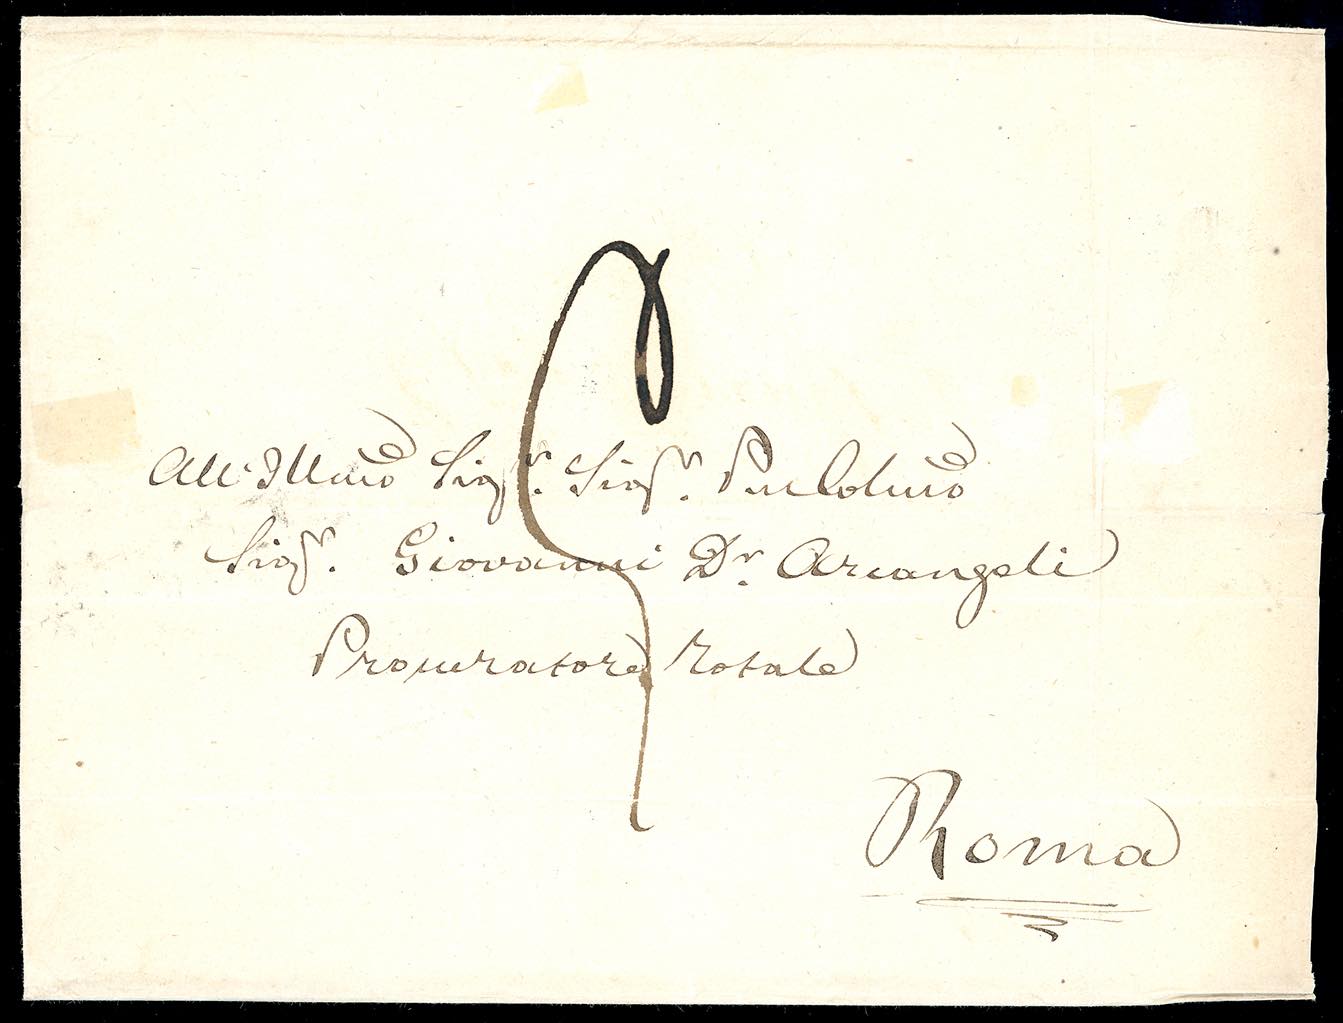 All'Illmo Sigr. Sigr. Pn Colmo
Sigr. Giovanni Dr. Arcangeli
Procuratore Rotale
Roma